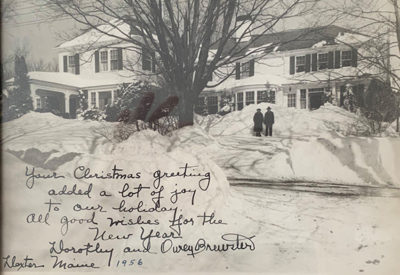 Your Christmas greeting
added a lot of joy
to our holiday.
All good wishes for the
New Year
Dorothy and Owen Brewster
Dexter Maine 1956